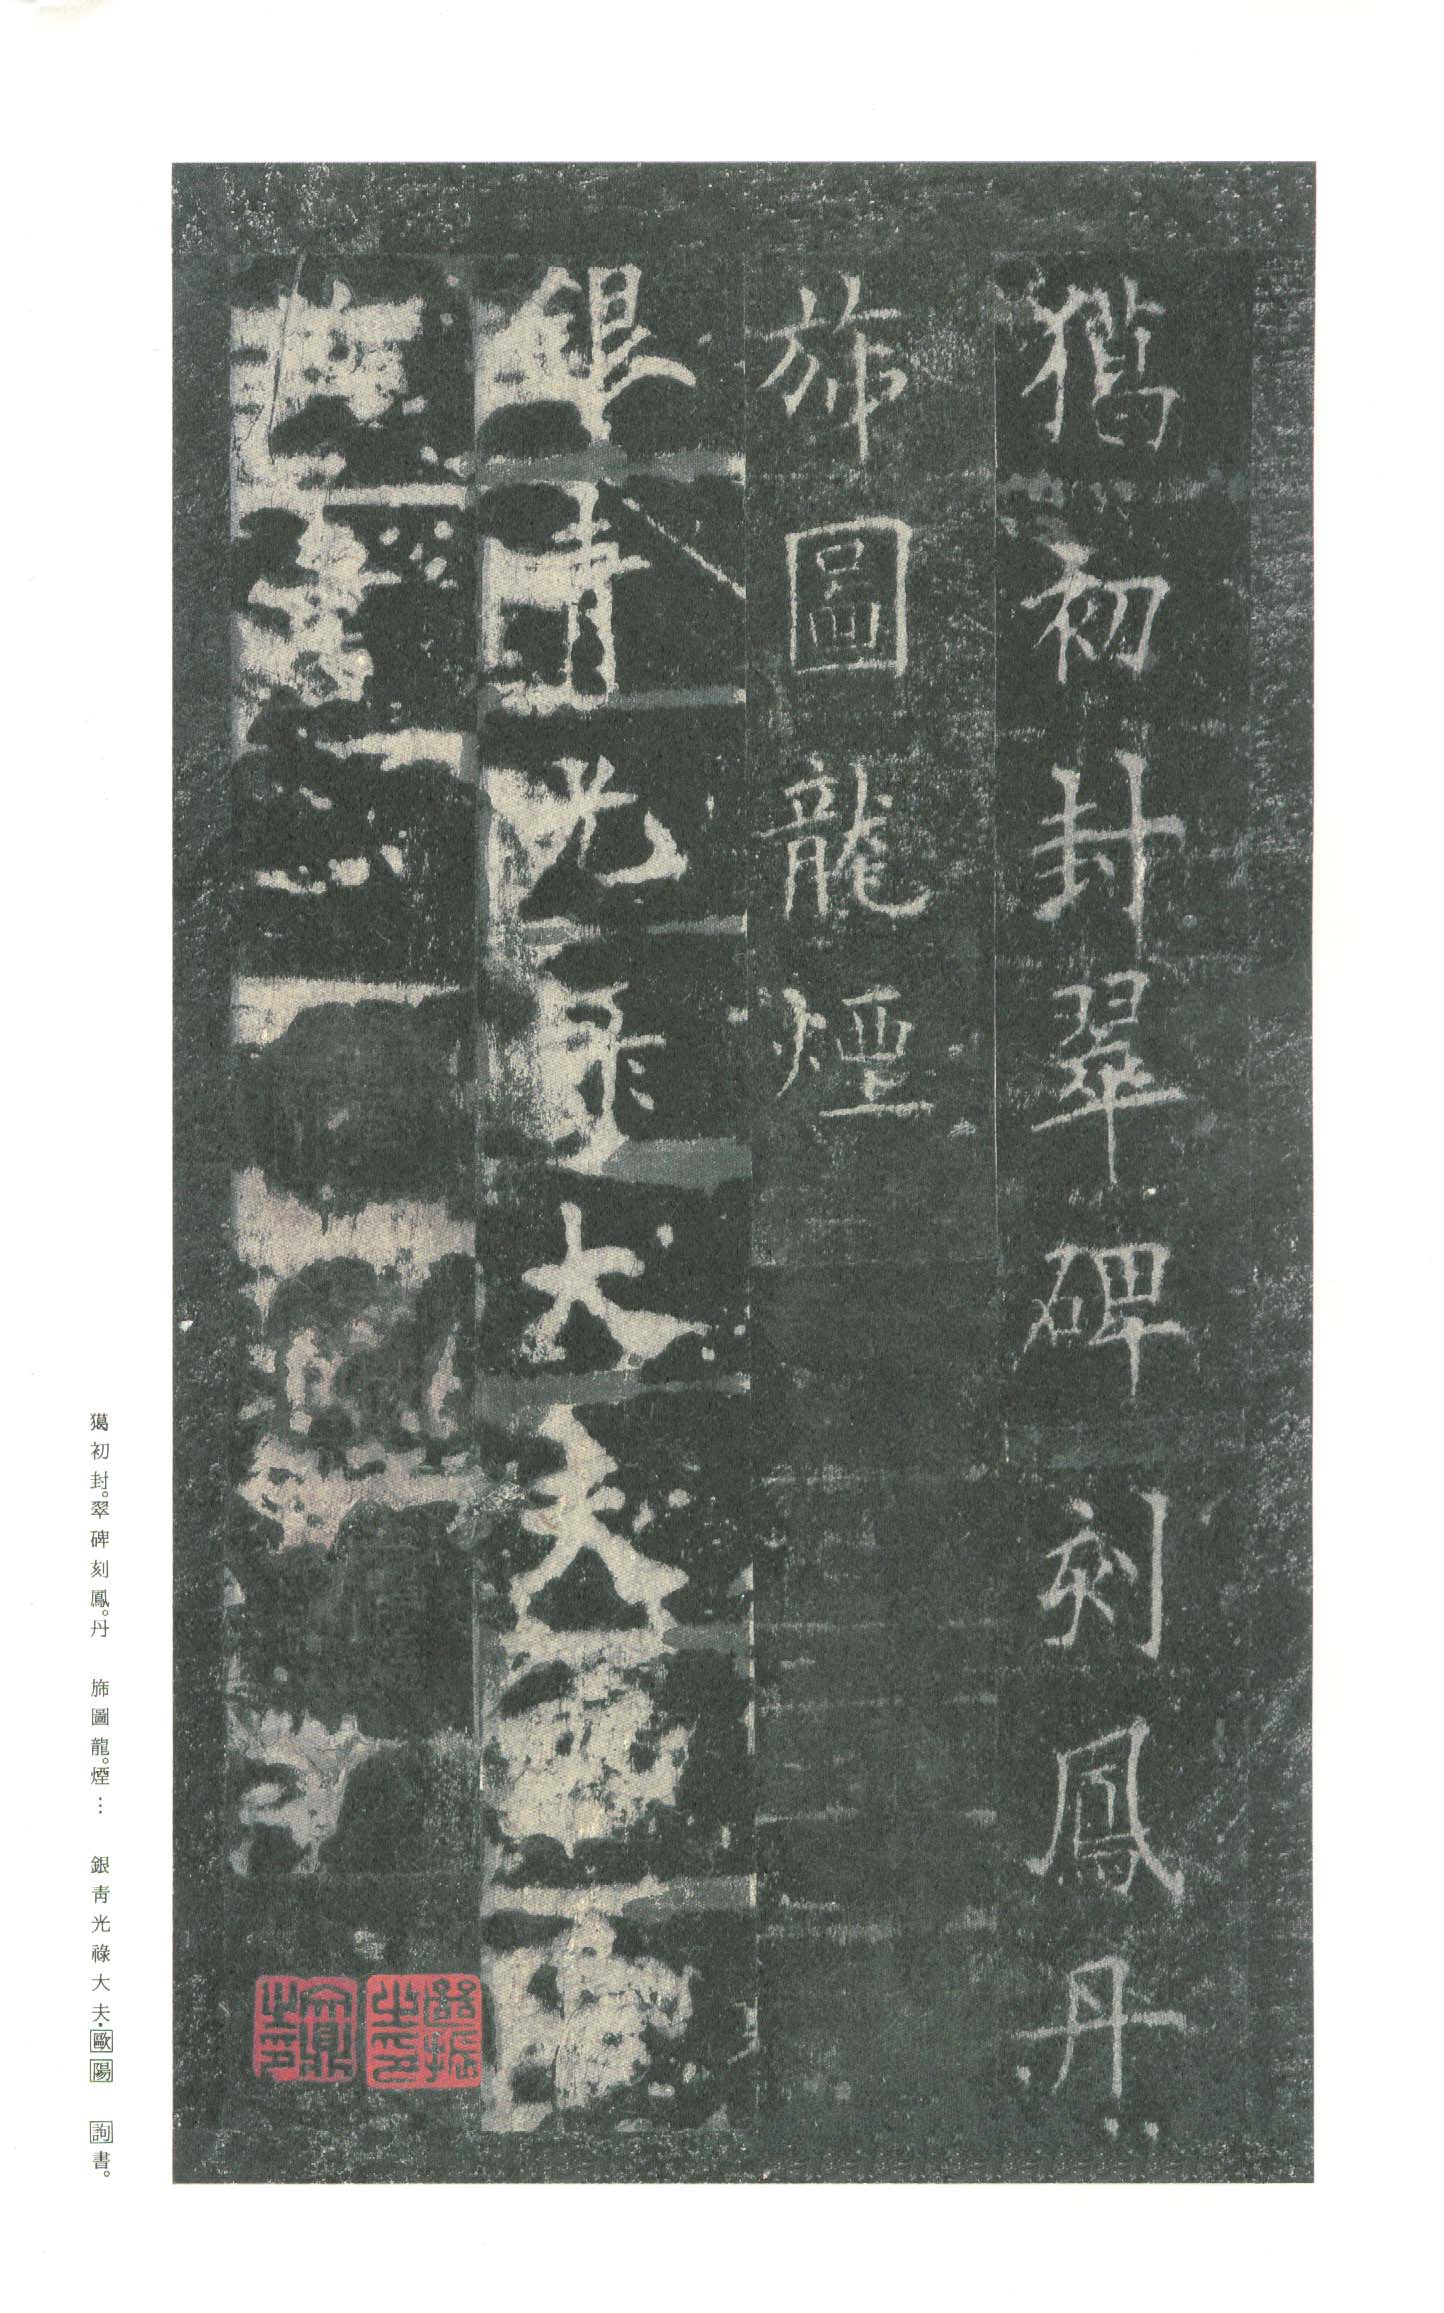 獦初封翠碑刻鳳丹
旆圖龍煙
銀青光祿大夫
書
獦初封。翠碑刻鳳。丹　旆圖龍。煙…　銀青光祿大夫·歐陽　詢書。